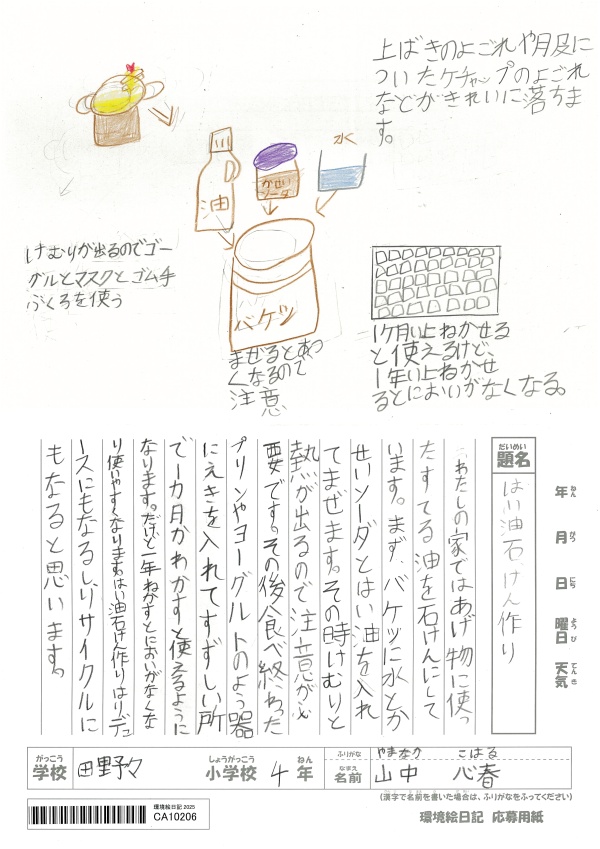 上ばきのよごれや服に
ついたケチャップのよごれ
などがきれいに落ちま
す。
油
かせい
ソーダ
水
バケツ
けむりが出るのでゴー
グルとマスクとゴム手
ぶくろを使う
まぜるとあつ
くなるので
注意
1ケ月以上ねかせる
と使えるけど、
1年以上ねかせ
るとにおいがなくなる。
だいめい
題名
はい油石けん作り
ねん
年
がつ
月
にち
日
ようび
曜日
てんき
天気
わたしの家ではあげ物に使っ
たすてる油を石けんにして
います。まず、バケツに水とか
せいソーダとはい油を入れ
てまぜます。その時けむりと
熱が出るので注意が必
要です。その後食べ終わった
プリンやヨーグルトのよう器
にえきを入れてすずしい所
で一カ月かわかすと使えるように
なります。だけど一年ねかすとにおいがなくな
り使いやすくなります。はい油石けん作りはリデュ
ースにもなるしリサイクルに
もなると思います。
がっこう
学校
田野々
しょうがっこう
小学校
4
ねん
年
ふりがな
なまえ
名前
やまなか こはる
山中 心春
(漢字で名前を書いた場合は、ふりがなをふってください)
環境絵日記 2025
CA10206
環境絵日記 応募用紙